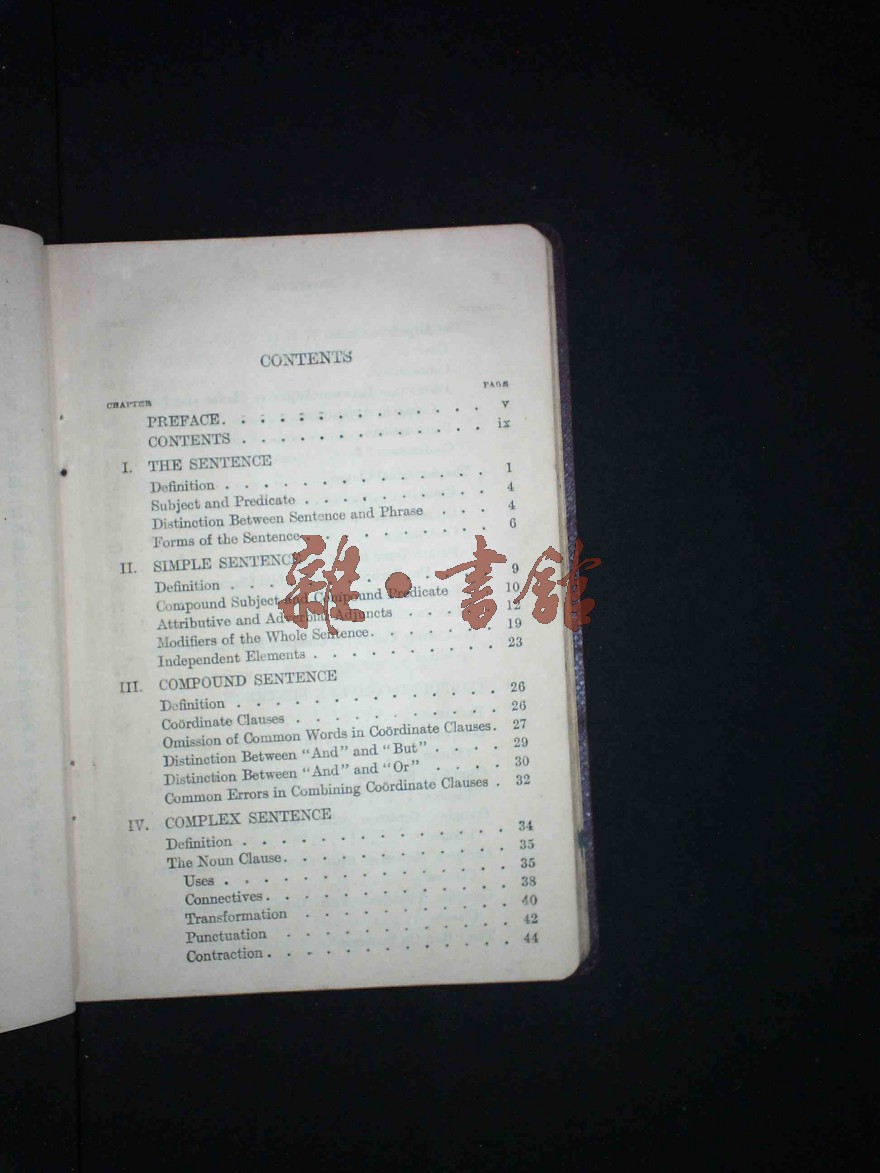 CONTENTS
CHAPTER PAGE
PREFACE. . . . . . . . . . . . . v
CONTENTS . . . . . . . . . . . . ix
I. THE SENTENCE
Definition . . . . . . . . . . . . 1
Subject and Predicate . . . . . . . . . 4
Distinction Between Sentence and Phrase . . . 4
Forms of the Sentence . . . . . . . . . 6
II. SIMPLE SENTENCE
Definition . . . . . . . . . . . . 9
Compound Subject and Compound Predicate 10
Attributive and Adverbial Adjuncts . . . . . 12
Modifiers of the Whole Sentence. . . . . . 19
Independent Elements . . . . . . . . . 23
III. COMPOUND SENTENCE
Definition . . . . . . . . . . . . 26
Coördinate Clauses . . . . . . . . . . 26
Omission of Common Words in Coördinate Clauses. 27
Distinction Between "And" and "But" . . . . 29
Distinction Between "And" and "Or" . . . . 30
Common Errors in Combining Coördinate Clauses . 32
IV. COMPLEX SENTENCE
Definition . . . . . . . . . . . . 34
The Noun Clause. . . . . . . . . . . 35
Uses . . . . . . . . . . . . . 35
Connectives. . . . . . . . . . . 38
Transformation . . . . . . . . . 40
Punctuation . . . . . . . . . . 42
Contraction. . . . . . . . . . . 44
雜·書館